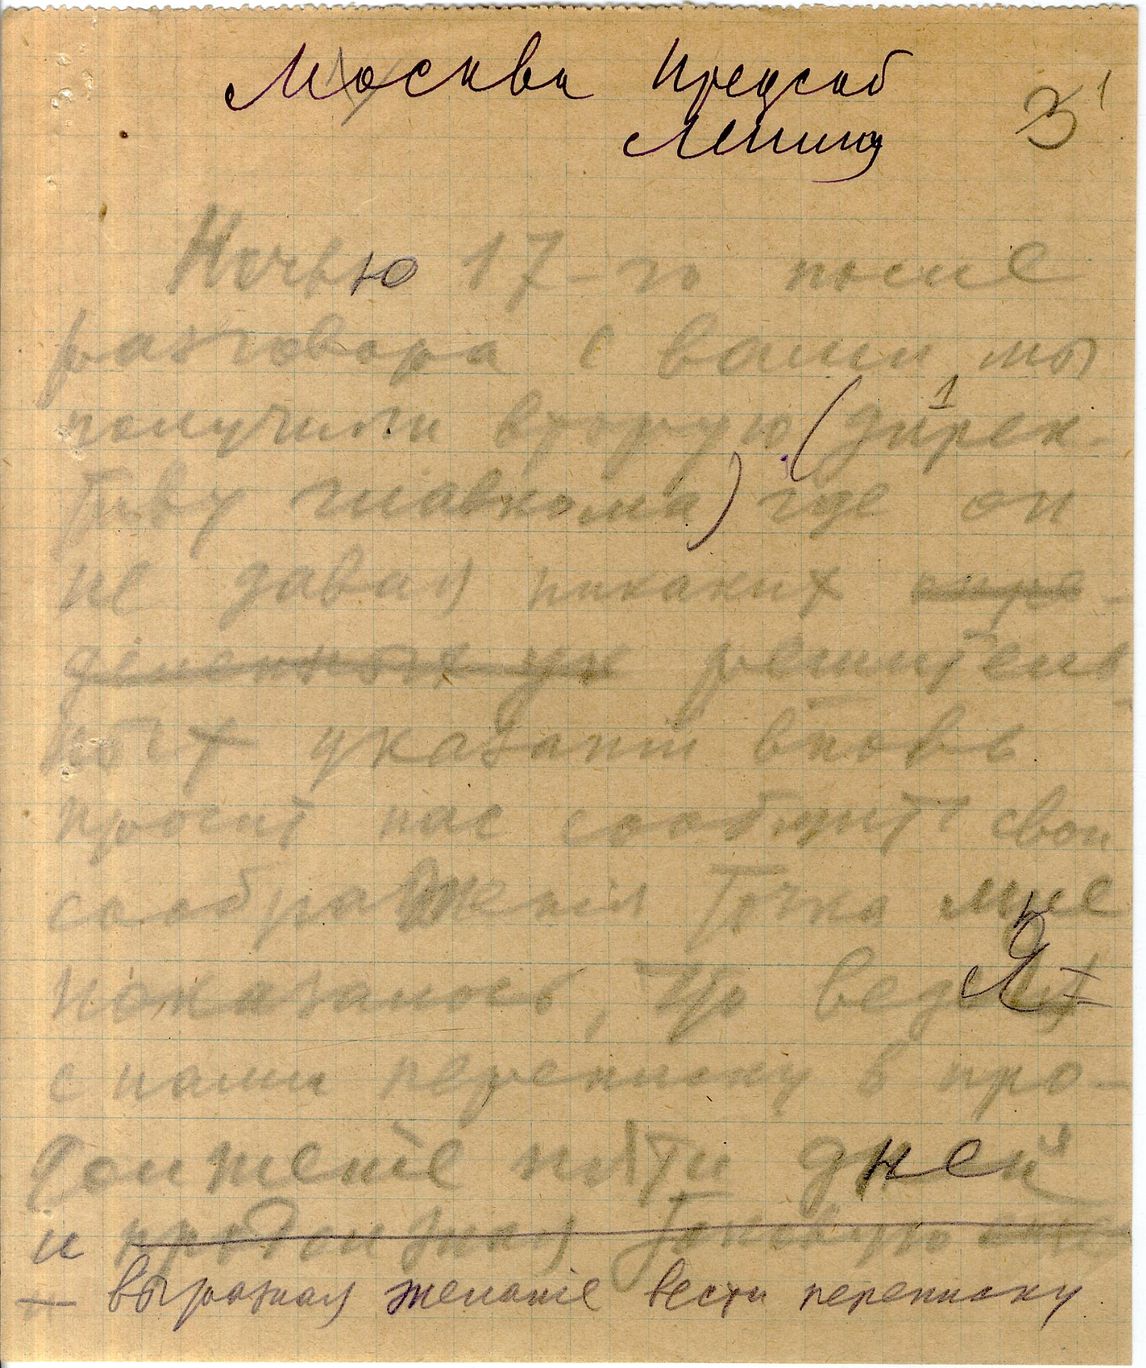 Москва Предсоб
Ленину
3
1
Ночью 17-го после
разговора с вами мы
получили вторую (дирек-
тиву главкома) где он
не давая никаких опре-
деленных ук решитель
ных указаний вновь
просит нас сообщить свои
соображения Точка мне
показалось, что
с нами переписку в про-
должение пяти дней
и продолжая таковую
выражая желание вести переписку